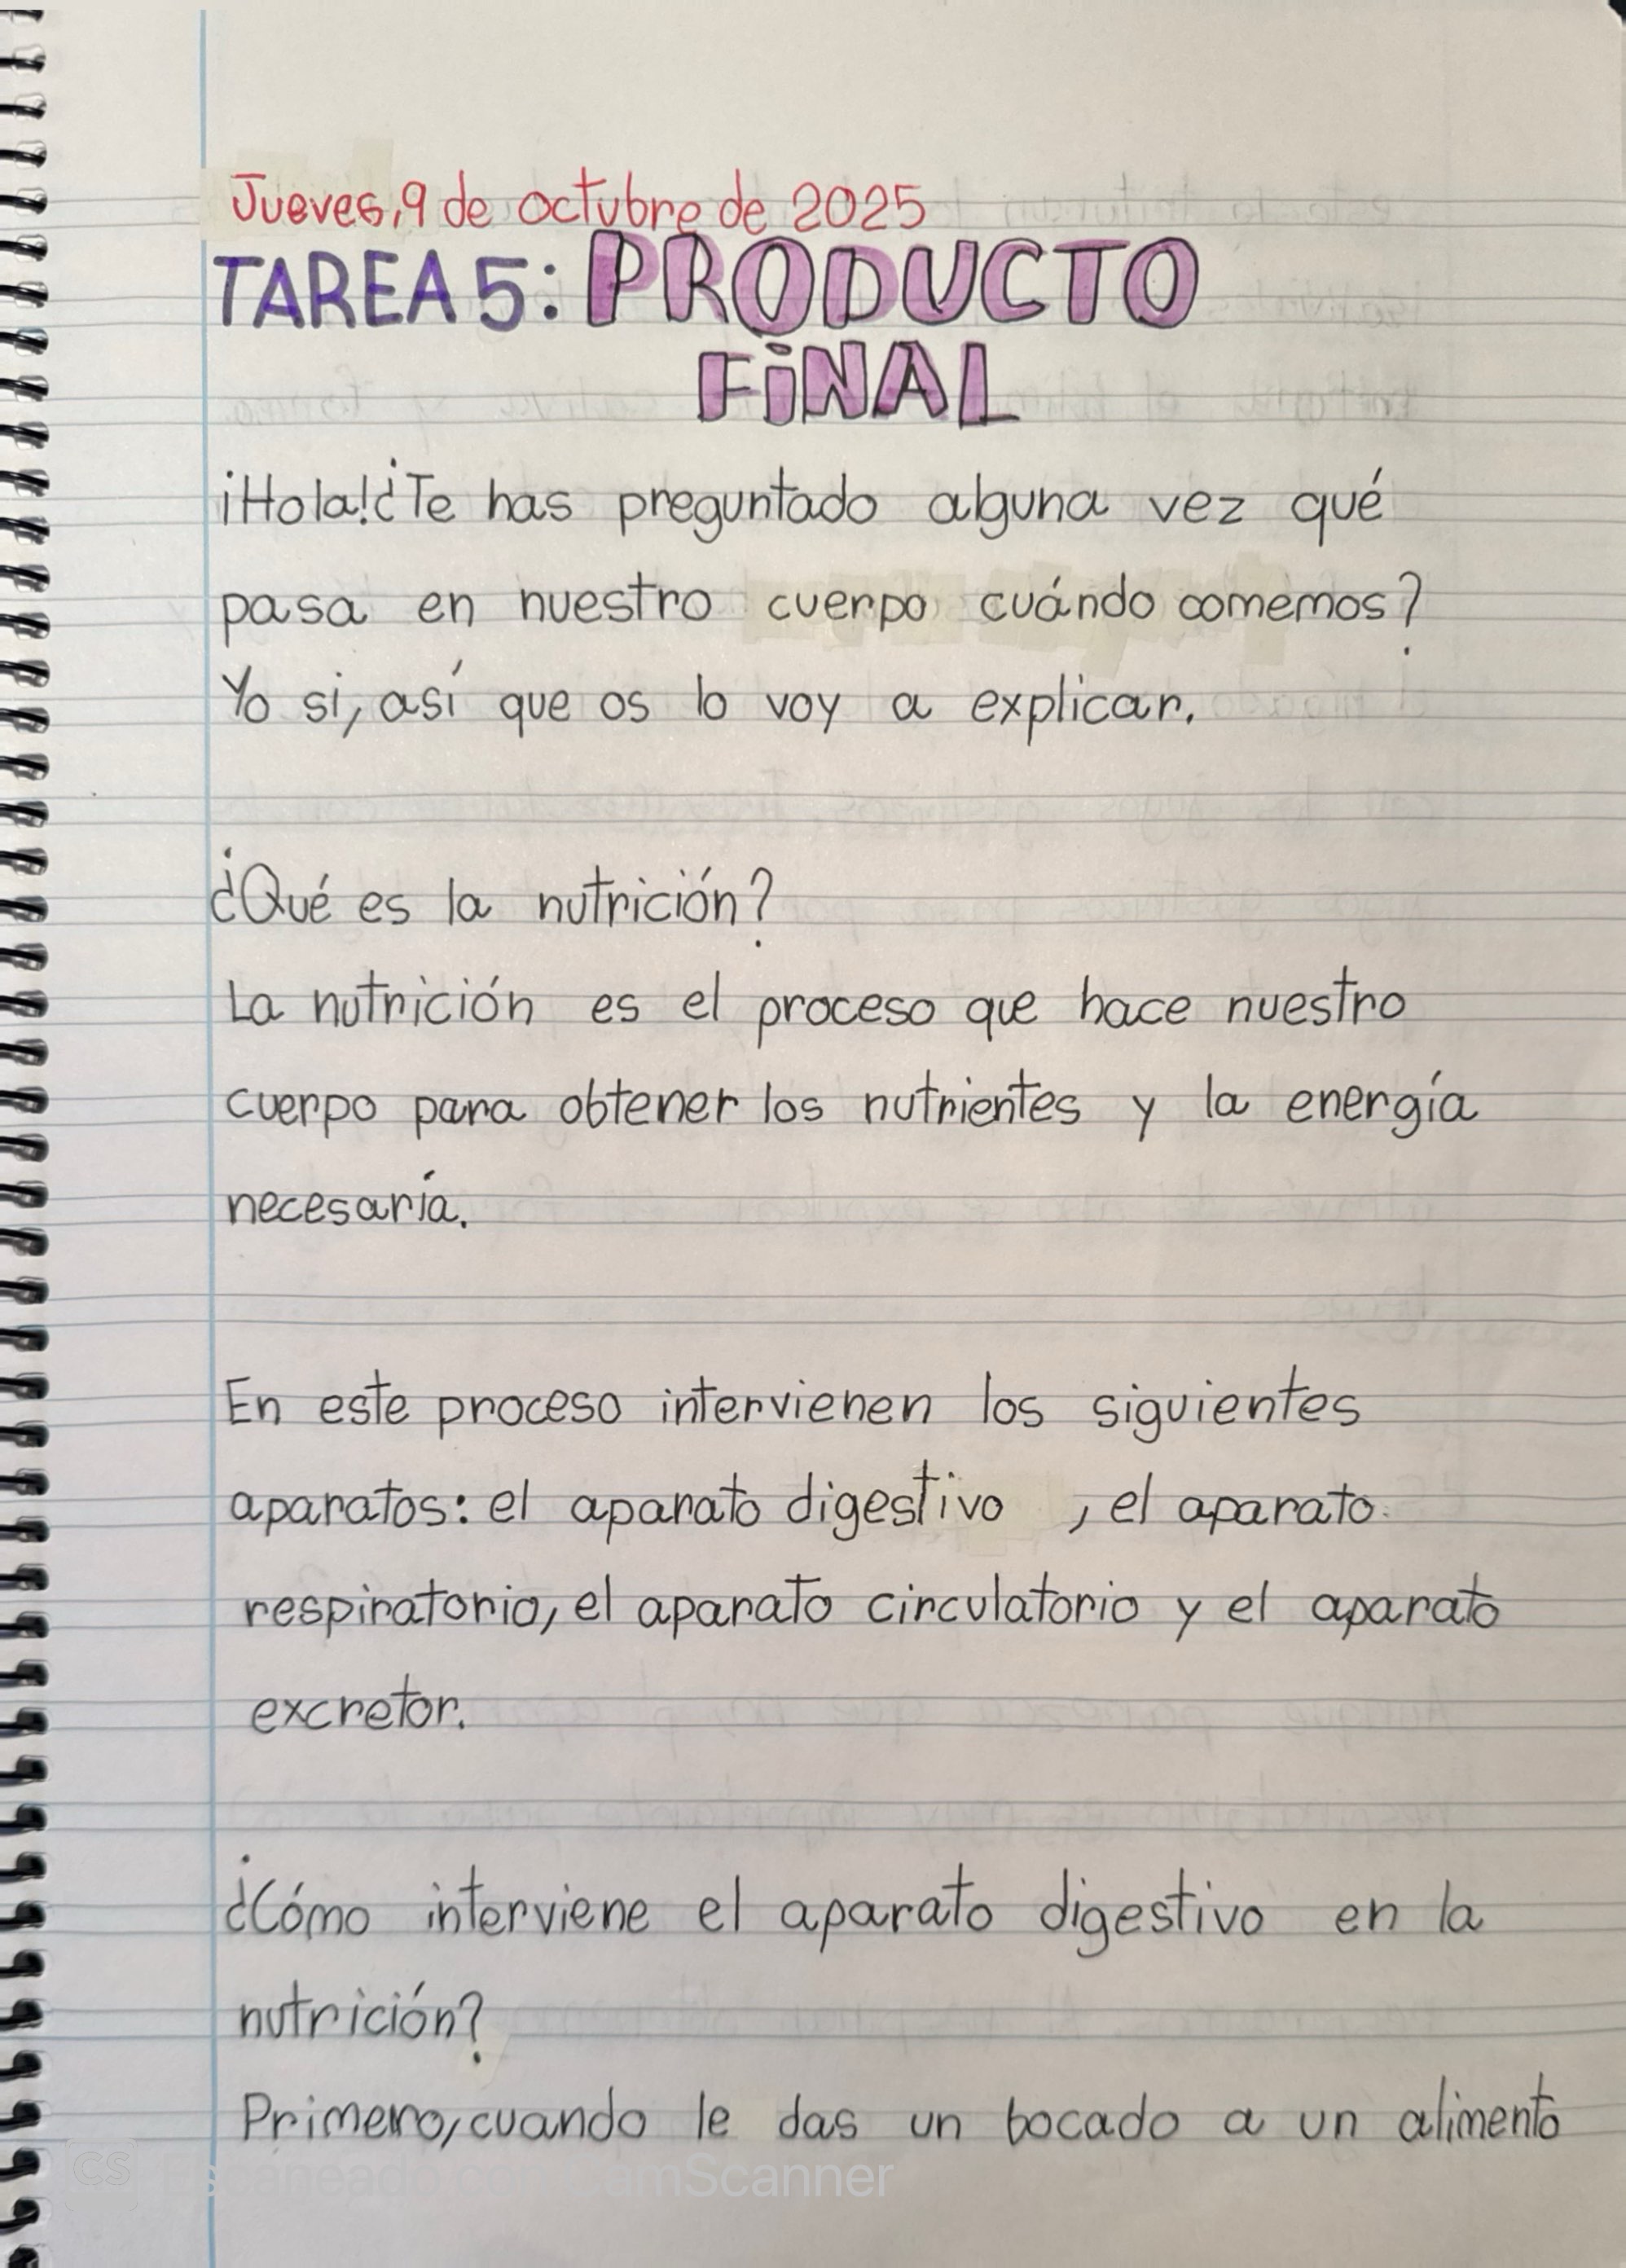 Jueves, 9 de octubre de 2025
TAREA 5: PRODUCTO
FiNAL
¡Hola! ¿Te has preguntado alguna vez qué
pasa en nuestro cuerpo cuándo comemos?
Yo si, así que os lo voy a explicar.
¿Qué es la nutrición?
La nutrición es el proceso que hace nuestro
cuerpo para obtener los nutrientes y la energía
necesaría.
En este proceso intervienen los siguientes
aparatos: el aparato digestivo , el aparato
respiratorio, el aparato circulatorio y el aparato
excretor.
¿Cómo interviene el aparato digestivo en la
nutrición?
Primero, cuando le das un bocado a un alimento
CS Escaneado con CamScanner